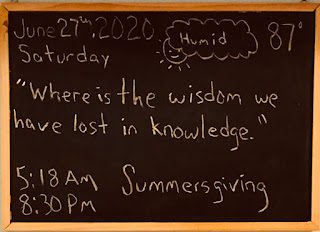 June 27th, 2020
Humid
87°
Saturday
"Where is the wisdom we
have lost in knowledge."
5:18 AM
Summersgiving
8:30 PM